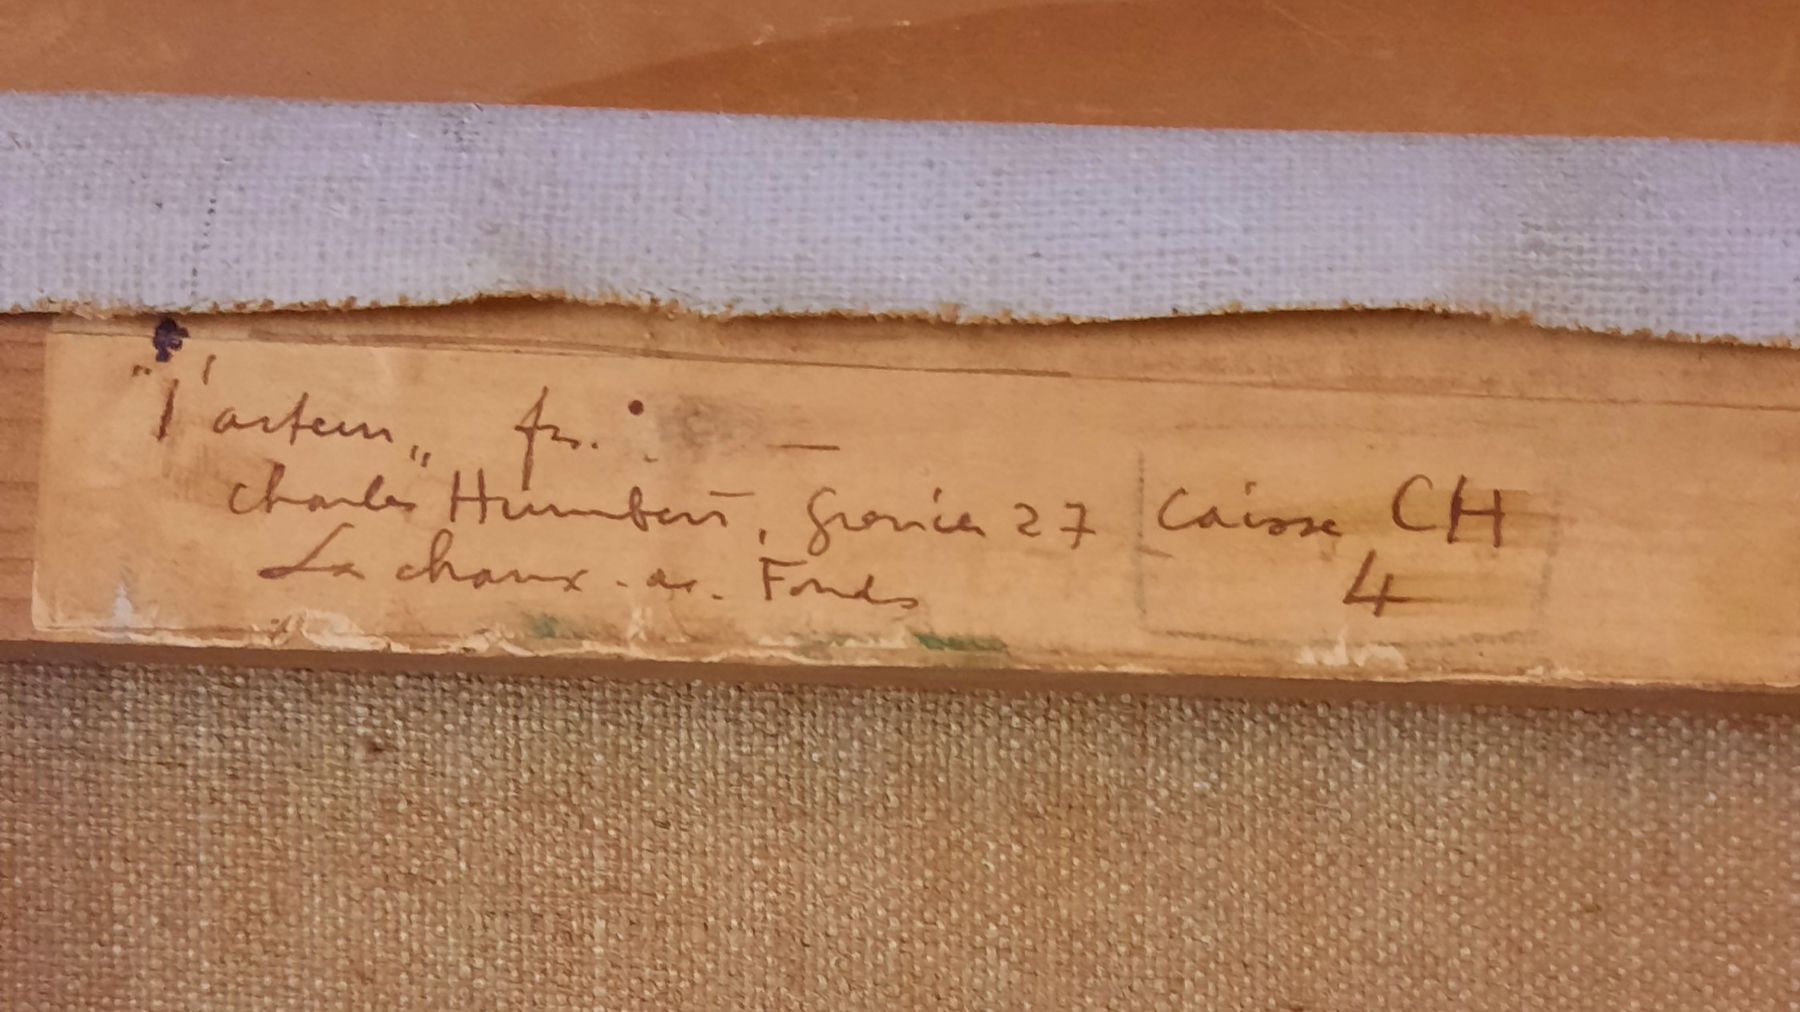 "l'acteur„ fr. —
Charles Humbert, Grenier 27
La Chaux-de-Fonds
Caisse CH
4